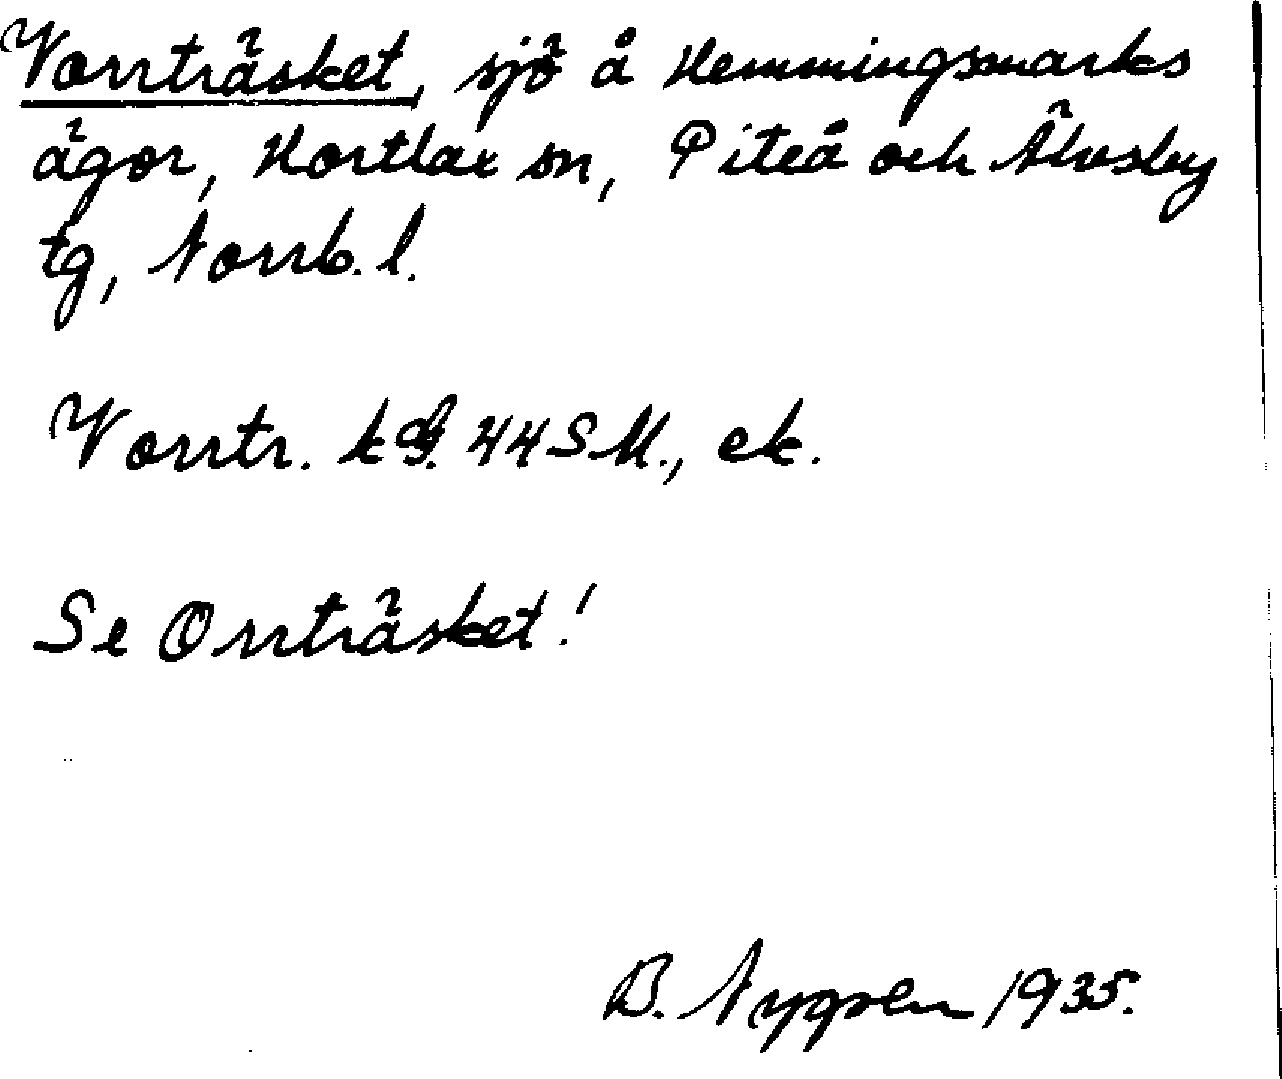 Vorrträsket, sjö å Hemmingsmarks
ägor, Hortlax sn, Piteå och Älvsby
tg, Norrb. l.
Vorrtr. 44 SM., ek.
Se Orrträsket!
B. Nygren 1935.